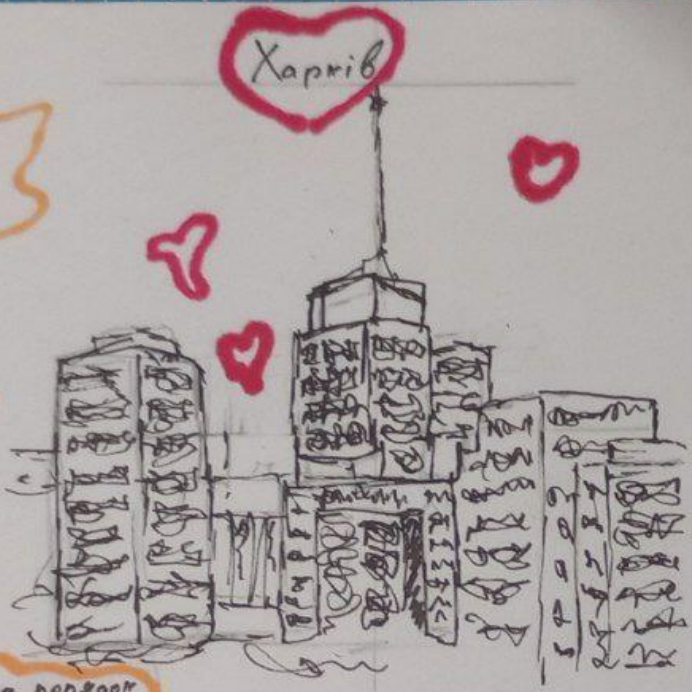 Харків